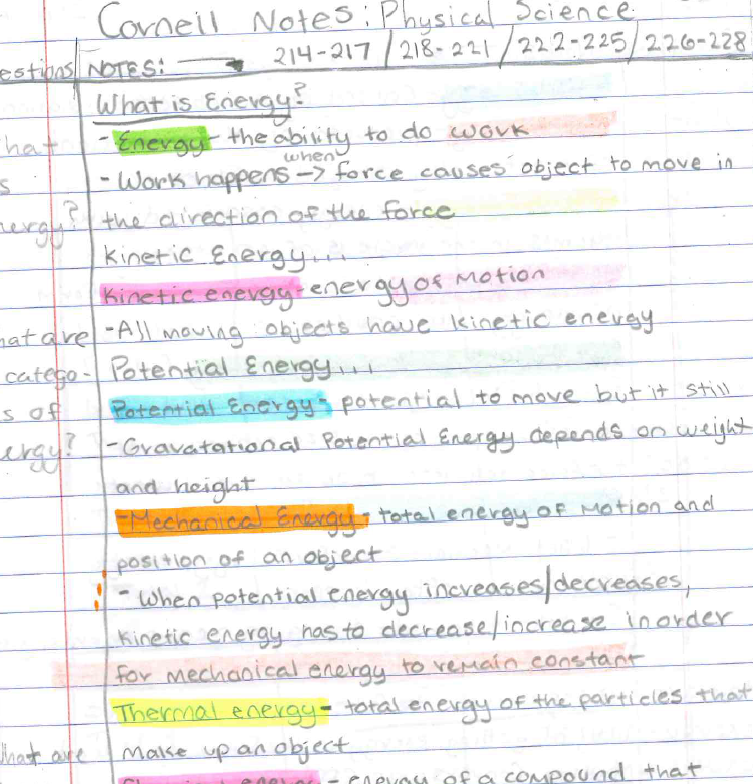 Cornell Notes: Physical Science
estions NOTES: → 214-217 / 218-221 / 222-225 / 226-228
What is Energy?
hat - Energy - the ability to do work
when
s - Work happens → force causes object to move in
nergy? the direction of the force
Kinetic Energy...
Kinetic energy - energy of Motion
hat are - All moving objects have kinetic energy
catego- Potential Energy...
s of Potential Energy - potential to move but it still
ergy? - Gravatational Potential Energy depends on weight
and height
- Mechanical Energy - total energy of Motion and
position of an object
- When potential energy increases/decreases,
Kinetic energy has to decrease/increase in order
for mechanical energy to remain constant
Thermal energy - total energy of the particles that
hat are make up an object
- energy of a compound that